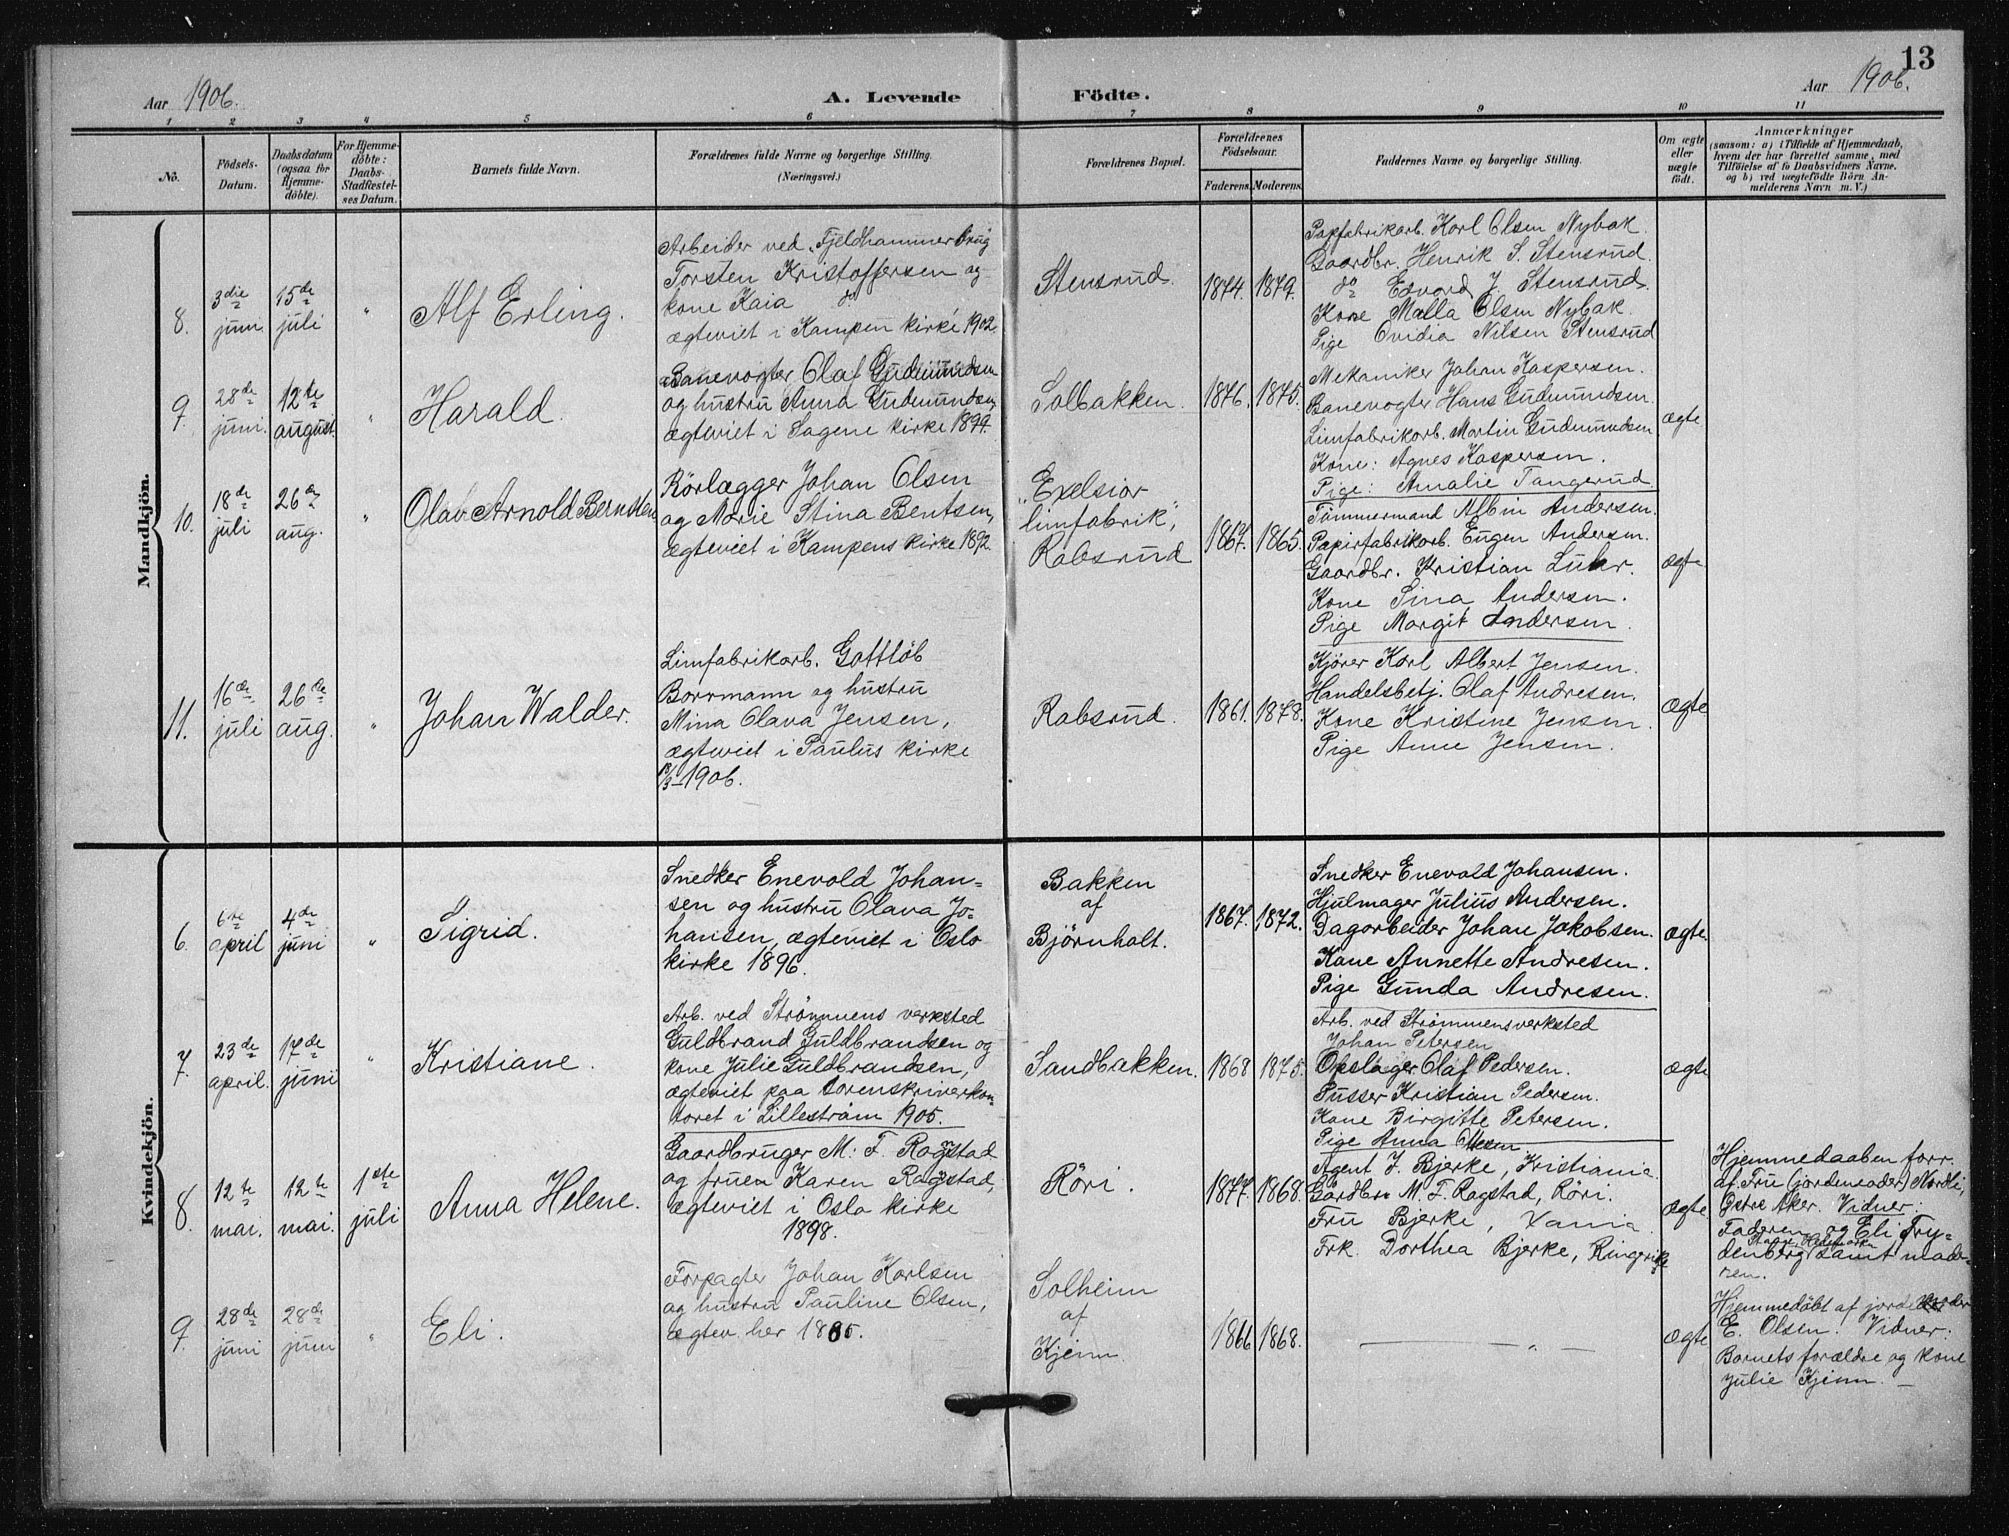 13
Aar 1906.
A. Levende Födte.
Aar 1906.
1 2 3 4 5 6 7 8 9 10 11
No.
Födsels-
Datum.
Daabsdatum
(ogsaa for
Hjemme-
döbte).
For Hjemme-
döbte:
Daabs-
Stadfæstel-
ses Datum.
Barnets fulde Navn.
Forældrenes fulde Navne og borgerlige Stilling.
(Næringsvei.)
Forældrenes Bopæl.
Forældrenes
Födselsaar.
Faderens. Moderens.
Faddernes Navne og borgerlige Stilling.
Om ægte
eller
uægte
födt.
Anmærkninger
(saasom: a) i Tilfælde af Hjemmedaab,
hvem der har forrettet samme, med
Tilföielse af to Daabsvidners Navne.
og b) ved uægtefödte Börn An-
melderens Navn m. V.)
Mandkjön.
8.
3die
juni
15de
juli
"
Alf Erling.
Arbeider ved Fjeldhammerbrug
Torsten Kristoffersen og
kone Kaia do
ægteviet i Kampen kirke 1902
Stensrud.
1874. 1879.
Papfabrikarb. Karl Olsen Nybak.
Gaardbr. Henrik S. Stensrud.
do Edvard J. Stensrud.
Kone Malla Olsen Nybak.
Pige Ovidia Nilsen Stensrud
9.
28de
juni.
12te
august.
"
Harald.
Banevogter Olaf Gudmundsen
og hustru Anna Gudmundsen,
ægteviet i Sagene kirke 1899.
Solbakken.
1876. 1875.
Mekaniker Johan Kaspersen.
Banevogter Hans Gudmundsen.
Limfabrikarb. Martin Gudmundsen
Kone: Agnes Kaspersen.
Pige: Amalie Tangerud.
ægte
10.
18de
juli
26de
aug.
"
Olav Arnold Bernsten
Rörlægger Johan Olsen
og Marie Stina Bentsen,
ægteviet i Kampens kirke 1892.
"Exelsior
limfabrik",
Robsrud
1867. 1865.
Tömmermand Albin Andersen.
Papirfabrikarb. Eugen Andersen.
Gaardbr. Kristian Luhr.
Kone Sina Andersen.
Pige Margit Andersen.
ægte
11.
16de
juli
26de
aug.
"
Johan Walder.
Limfabrikarb. Gottlöb
Borrmann og hustru
Mina Olava Jensen,
ægteviet i Paulus kirke
1906.
Robsrud.
1861. 1878.
Kjører Karl Albert Jensen.
Handelsbetj. Olaf Andresen.
Kone Kristine Jensen.
Pige Anne Jensen.
ægte
Kvindekjön.
6.
6te
april
4de
juni
"
Sigrid.
Snedker Enevold Johan=
sen og hustru Olava Jo=
hansen, ægteviet i Oslo
kirke 1896.
Bakken
af
Bjørnholt.
1867. 1872.
Snedker Enevold Johansen.
Hjulmager Julius Andersen.
Dagarbeider Johan Jakobsen.
Kone Annette Andresen.
Pige Gunda Andresen.
ægte
7.
23de
april.
17de
juni
"
Kristiane.
Arb. ved Strømmens verksted
Guldbrand Guldbrandsen og
kone Julie Guldbrandsen,
ægteviet paa sorenskriverkon=
toret i Lillestrøm 1905.
Sandbakken.
1868 1875.
Arb. ved Strømmensverksted
Johan Petersen
Opslager Olaf Pedersen.
Pusser Kristian Pedersen.
Kone Birgitte Petersen.
Pige Anna Olsen
ægte
8.
12te
mai.
12te
mai.
1ste
juli
Anna Helene.
Gaardbruger M. F. Rogstad
og fruen Karen Rogstad,
ægteviet i Oslo kirke
1898.
Röri.
1877. 1868.
Agent J. Bjerke, Kristiania.
Gårdbr. M. F. Rogstad, Röri.
Fru Bjerke, Xania
Frk. Dorthea Bjerke, Ringerike
ægte
Hjemmedaaben forr.
af Fru (jordemoder) Nordli,
Østre Aker. Vidner:
Faderen og Eli Fry=
Stange Hedemarken
denberg samt mode=
ren.
9.
28de
juni
28de
juni
"
Eli.
Forpagter Johan Karlsen
og hustru Pauline Olsen,
ægtev. her 1885.
Solheim
af
Kjenn
1866 1868.
— " —
ægte
Hjemmedøbt af jordemoder
E. Olsen. Vidner:
Barnets forældre og kone
Julie Kjenn. —